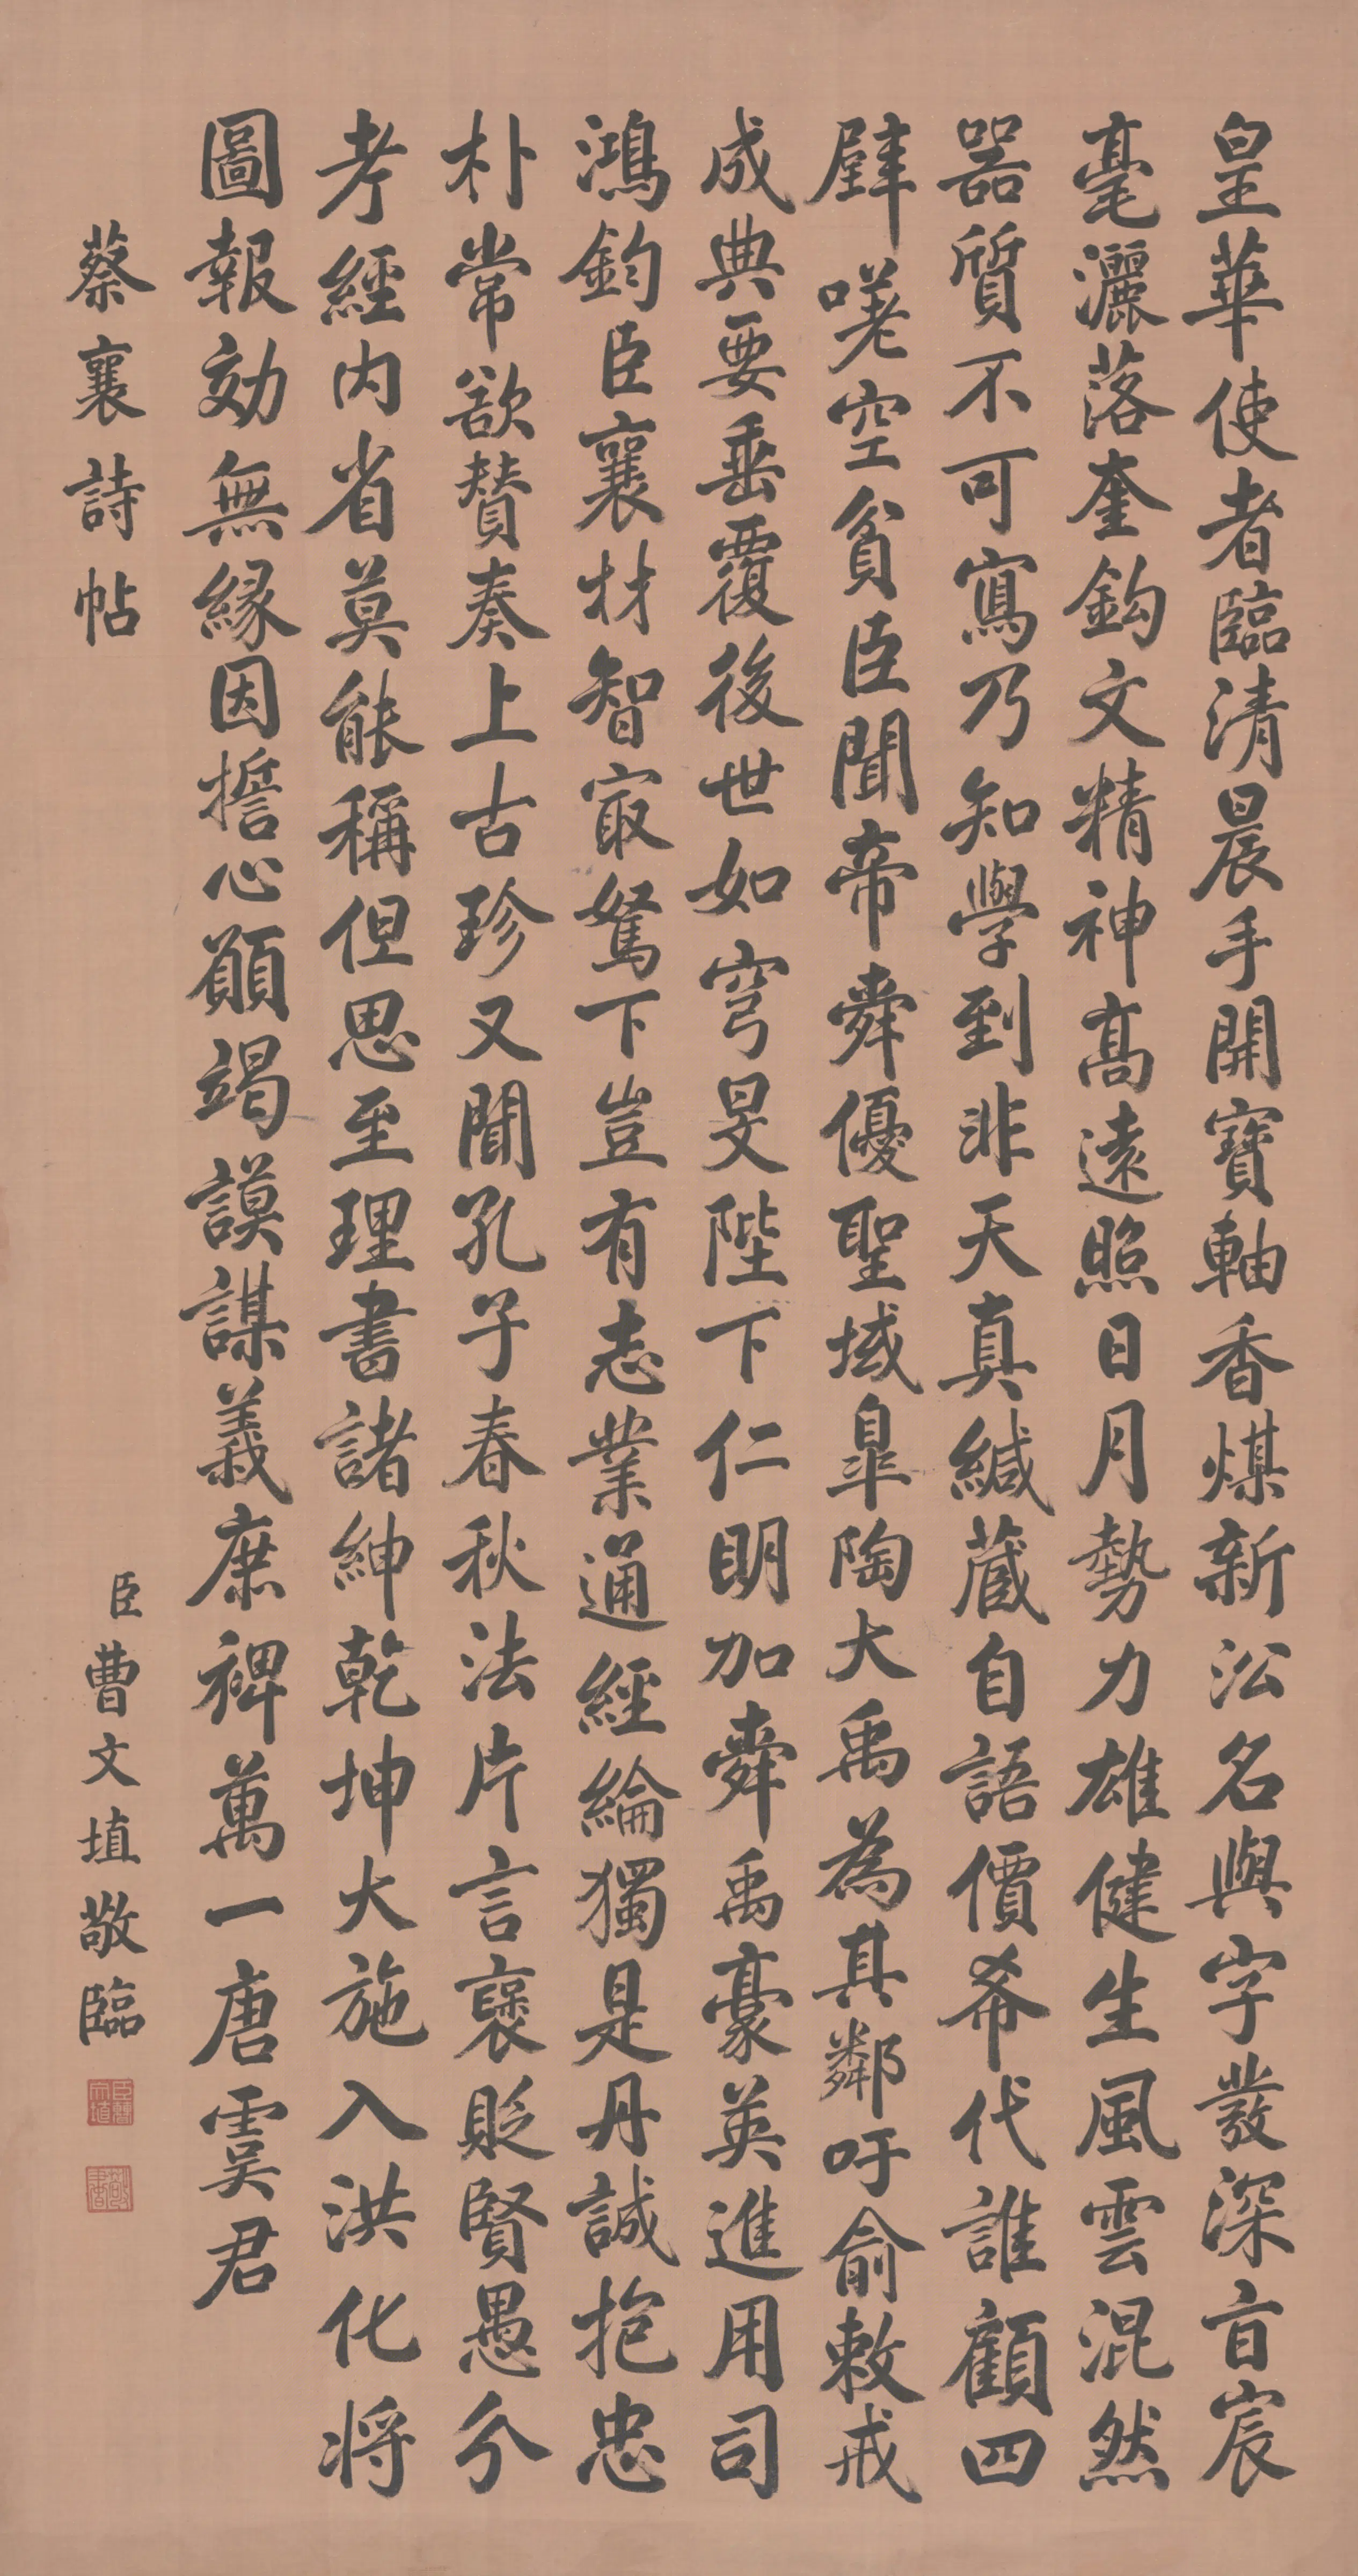 皇華使者臨清晨手開寶軸香煤新沿名與字發深旨宸
毫灑落奎鈎文精神髙遠照日月勢力雄健生風雲混然
器質不可寫乃知學到非天真緘蔵自語價希代誰顧四
壁嘆空貧臣聞帝舜優聖域臯陶大禹為其鄰吁俞敕戒
成典要垂覆後世如穹旻陛下仁明加舜禹豪英進用司
鴻鈞臣襄材智㝡駑下豈有志業通經綸獨是丹誠抱忠
朴常欲賛奏上古珍又聞孔子春秋法片言襃貶賢愚分
考經内省莫能稱但思至理書諸紳乾坤大施入洪化将
圖報効無縁因擔心願竭謨謀義庶裨萬一唐虞君
蔡襄詩帖
臣曹文埴敬臨
臣曹文埴
敬書